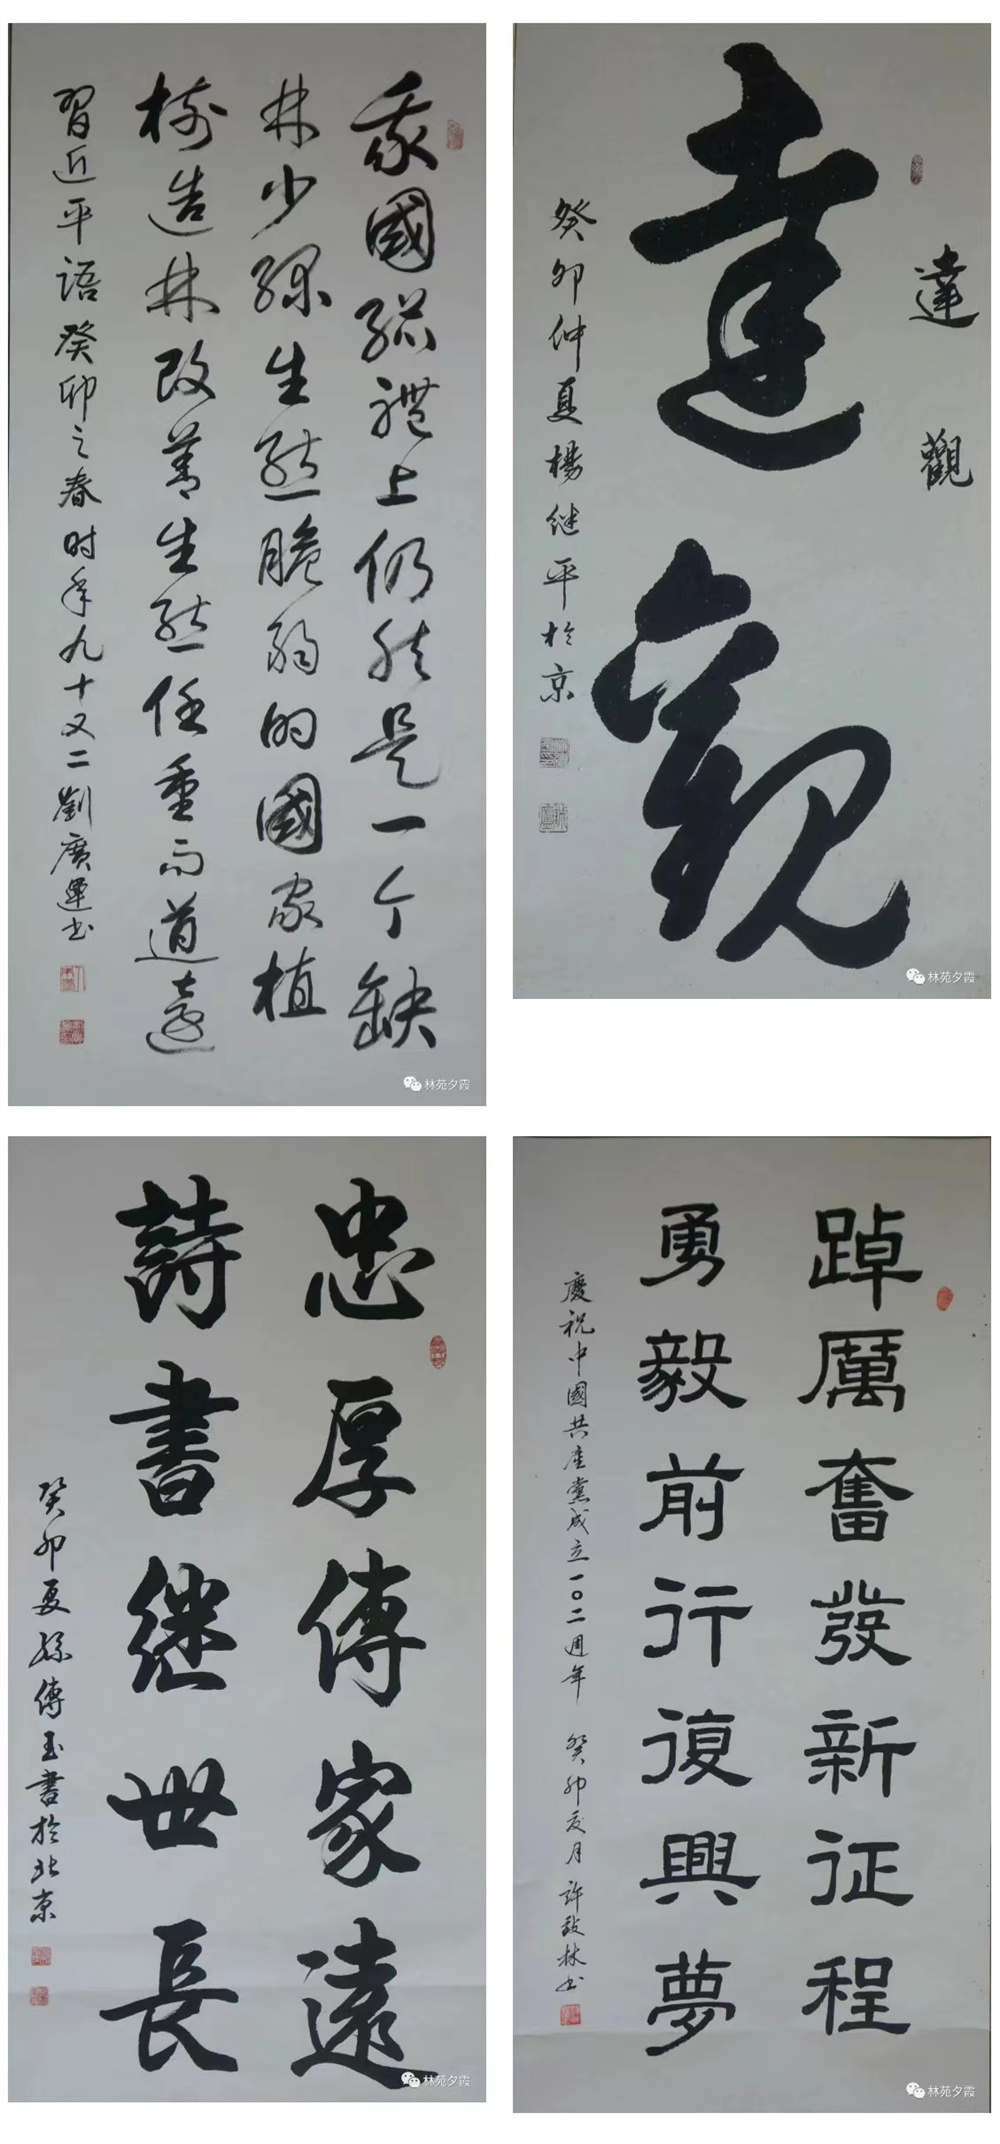 我國總體上仍然是一个缺
林少綠生态脆弱的國家植
樹造林改善生态任重而道遠
習近平語癸卯之春时年九十又二劉廣運书
林苑夕霞
達觀
達觀
癸卯仲夏楊继平於京
林苑夕霞
忠厚傳家遠
詩書继世長
癸卯夏孫傳玉書於北京
林苑夕霞
踔厲奮發新征程
勇毅前行復興夢
慶祝中國共產黨成立一〇二週年 癸卯友月 許致林书
林苑夕霞